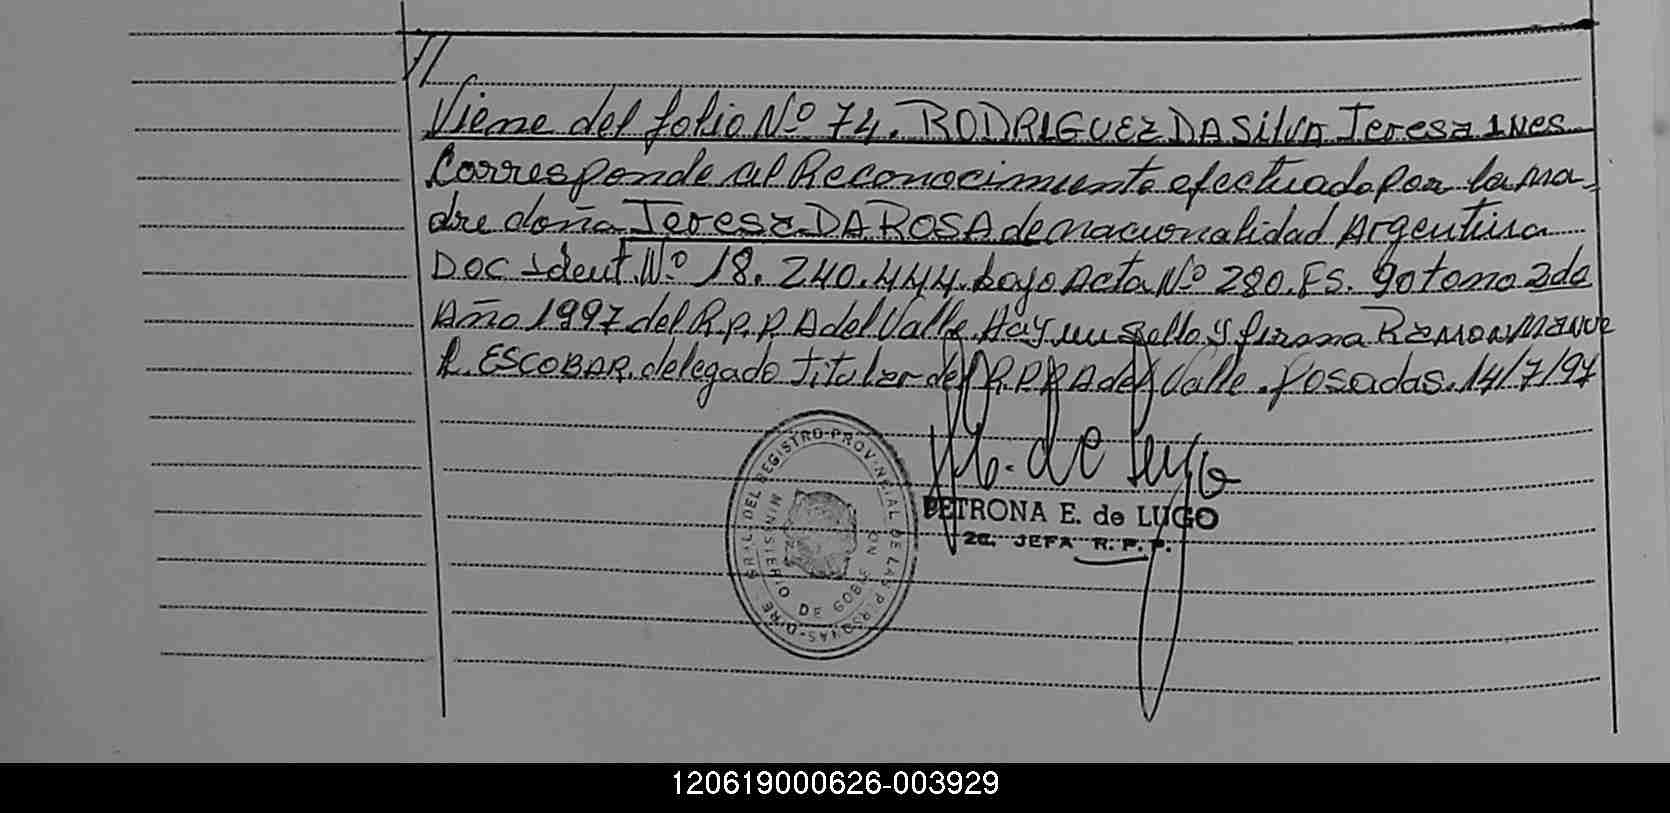 //
Viene del folio Nº 74. RODRIGUEZ DA Silva Teresa Ines
Corresponde al Reconocimiento efectuado por la ma-
dre doña Teresa DA ROSA de nacionalidad Argentina
Doc Ident. Nº 18.240.444. bajo Acta Nº 280. FS. 90 tomo 2do
Año 1997 del R.P.P. A del Valle. Hay un sello y firma Ramon Manue
l. ESCOBAR. delegado titular del R.P.P. A del Valle. Posadas. 14/7/97
P. de Lugo
PETRONA E. de LUGO
2a. JEFA R. P. P.
DIRE GRAL DEL REGISTRO PROVINCIAL DE LAS PERSONAS
MINISTERIO DE GOBIERNO
120619000626-003929